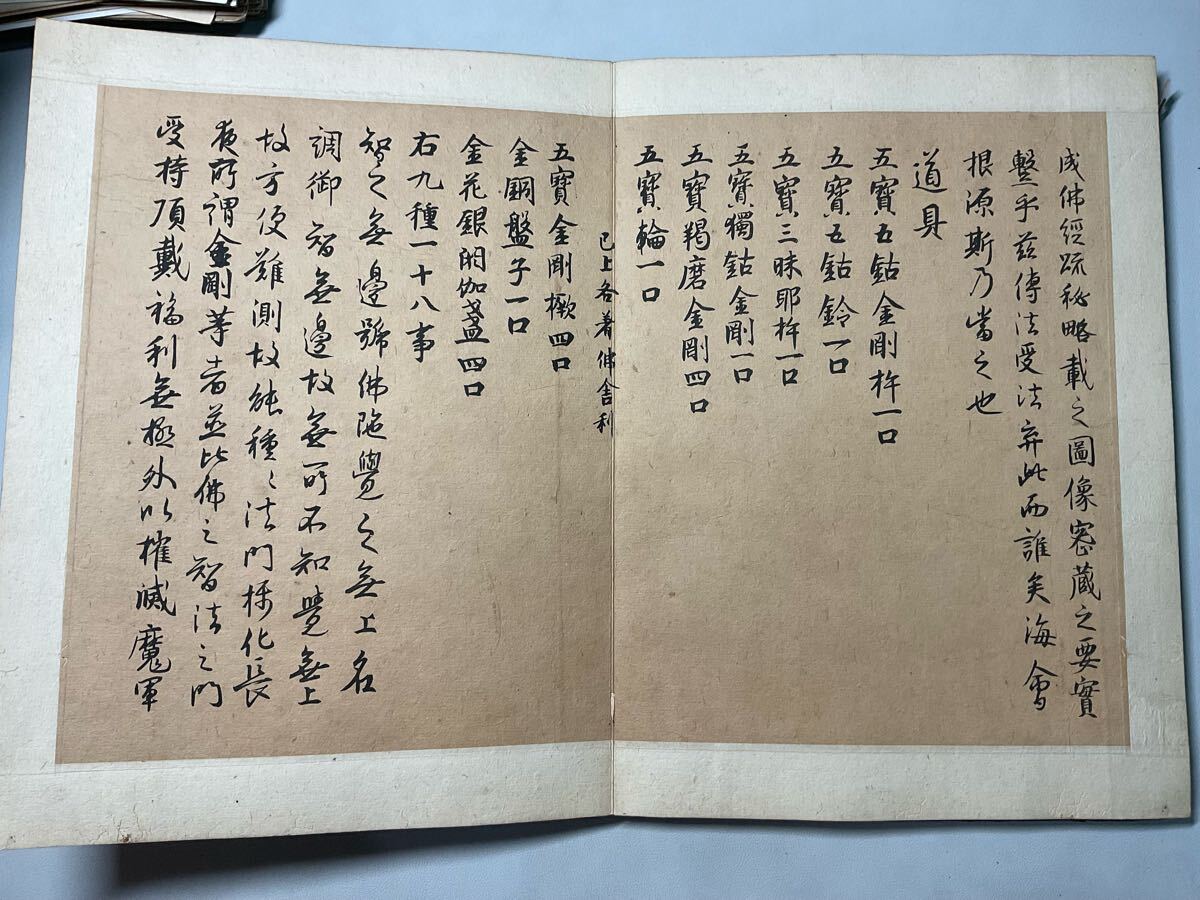 成佛經疏秘略載之圖像密藏之要實
繫乎茲傳法受法弃此而誰矣海會
根源斯乃當之也
道具
五寶五鈷金剛杵一口
五寶五鈷鈴一口
五寶三昧耶杵一口
五寶獨鈷金剛一口
五寶羯磨金剛四口
五寶輪一口
已上各著佛舍利
五寶金剛橛四口
金銅盤子一口
金花銀閼伽盞四口
右九種一十八事
智之無邊號佛陁覺之無上名
調御智無邊故無所不知覺無上
故方便難測故能種〻法門拯化長
夜所謂金剛等者並此佛之智法之門
受持頂戴福利無極外以摧滅魔軍